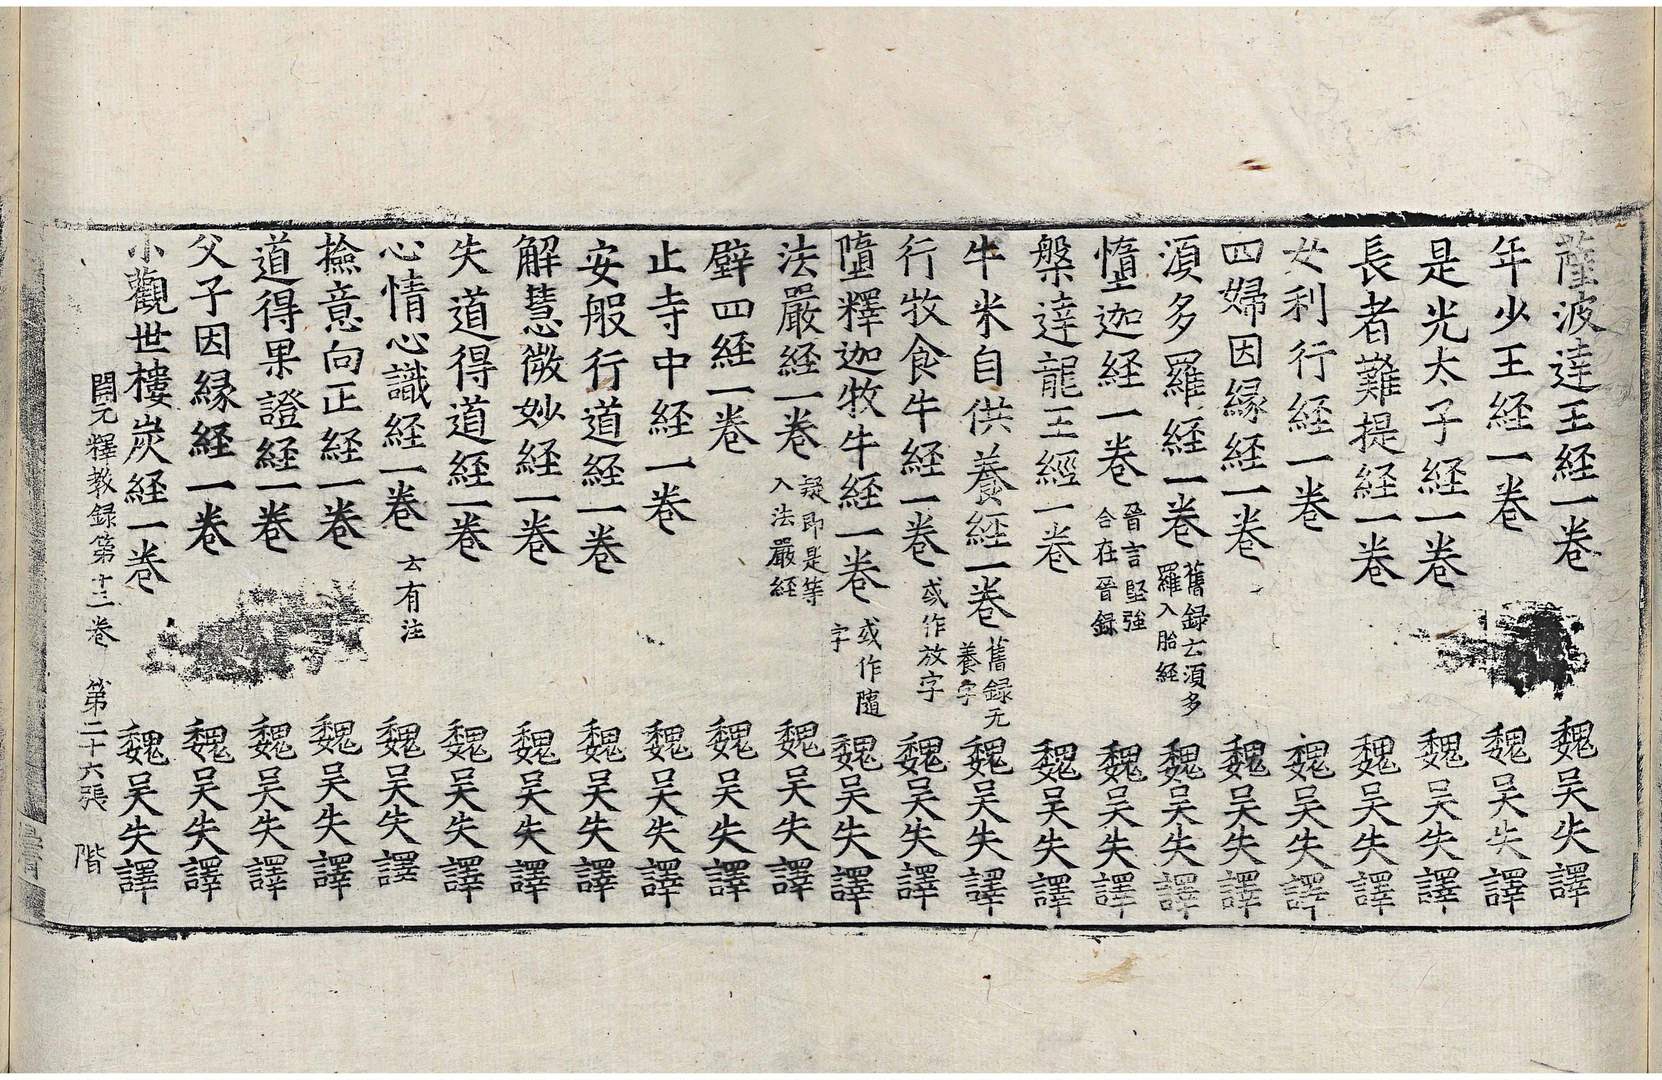 薩波達王経一卷 魏吴失譯
年少王経一卷 魏吴失譯
是光太子経一卷 魏吴失譯
長者難提経一卷 魏吴失譯
女利行経一卷 魏吴失譯
四婦因縁経一卷 魏吴失譯
湏多羅経一卷 舊録云湏多羅入胎経 魏吴失譯
惰迦経一卷 晉言堅強合在晉録 魏吴失譯
槃達龍王經一卷 魏吴失譯
牛米自供養経一卷 舊録无養字 魏吴失譯
行牧食牛経一卷 或作放字 魏吴失譯
墮釋迦牧牛経一卷 或作隨字 魏吴失譯
法嚴経一卷 疑即是等入法嚴経 魏吴失譯
壁四経一卷 魏吴失譯
止寺中経一卷 魏吴失譯
安般行道経一卷 魏吴失譯
解慧微妙経一卷 魏吴失譯
失道得道経一卷 魏吴失譯
心情心識経一卷 云有注 魏吴失譯
撿意向正経一卷 魏吴失譯
道得果證経一卷 魏吴失譯
父子因縁経一卷 魏吴失譯
小觀世樓炭経一卷 魏吴失譯
開元釋教録第十三卷 第二十六張 階